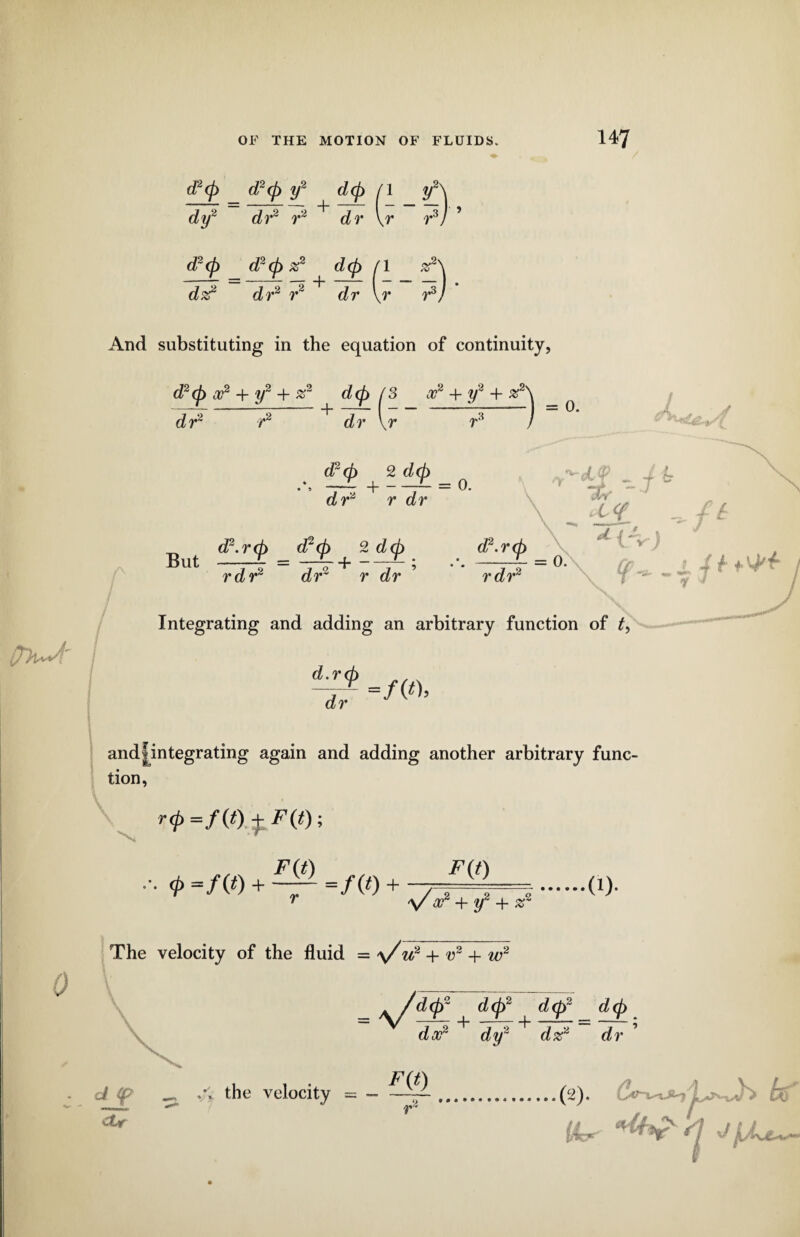 OF THE MOTION OF FLUIDS.
147
d²φ/dy² = d²φ/dr² y²/r² + dφ/dr (1/r − y²/r³),
d²φ/dz² = d²φ/dr² z²/r² + dφ/dr (1/r − z²/r³).
And substituting in the equation of continuity,
d²φ/dr² (x² + y² + z²)/r² + dφ/dr (3/r − (x² + y² + z²)/r³) = 0.
∴, d²φ/dr² + 2/r dφ/dr = 0.
But d².rφ/rdr² = d²φ/dr² + 2/r dφ/dr; ∴ d².rφ/rdr² = 0.
Integrating and adding an arbitrary function of t,
d.rφ/dr = f(t),
and integrating again and adding another arbitrary func-
tion,
rφ = f(t) + F(t);
∴ φ = f(t) + F(t)/r = f(t) + F(t)/√x² + y² + z² ......(1).
The velocity of the fluid = √u² + v² + w²
= √dφ²/dx² + dφ²/dy² + dφ²/dz² = dφ/dr;
dφ/dr = ∴ the velocity = − F(t)/r² ...............(2).